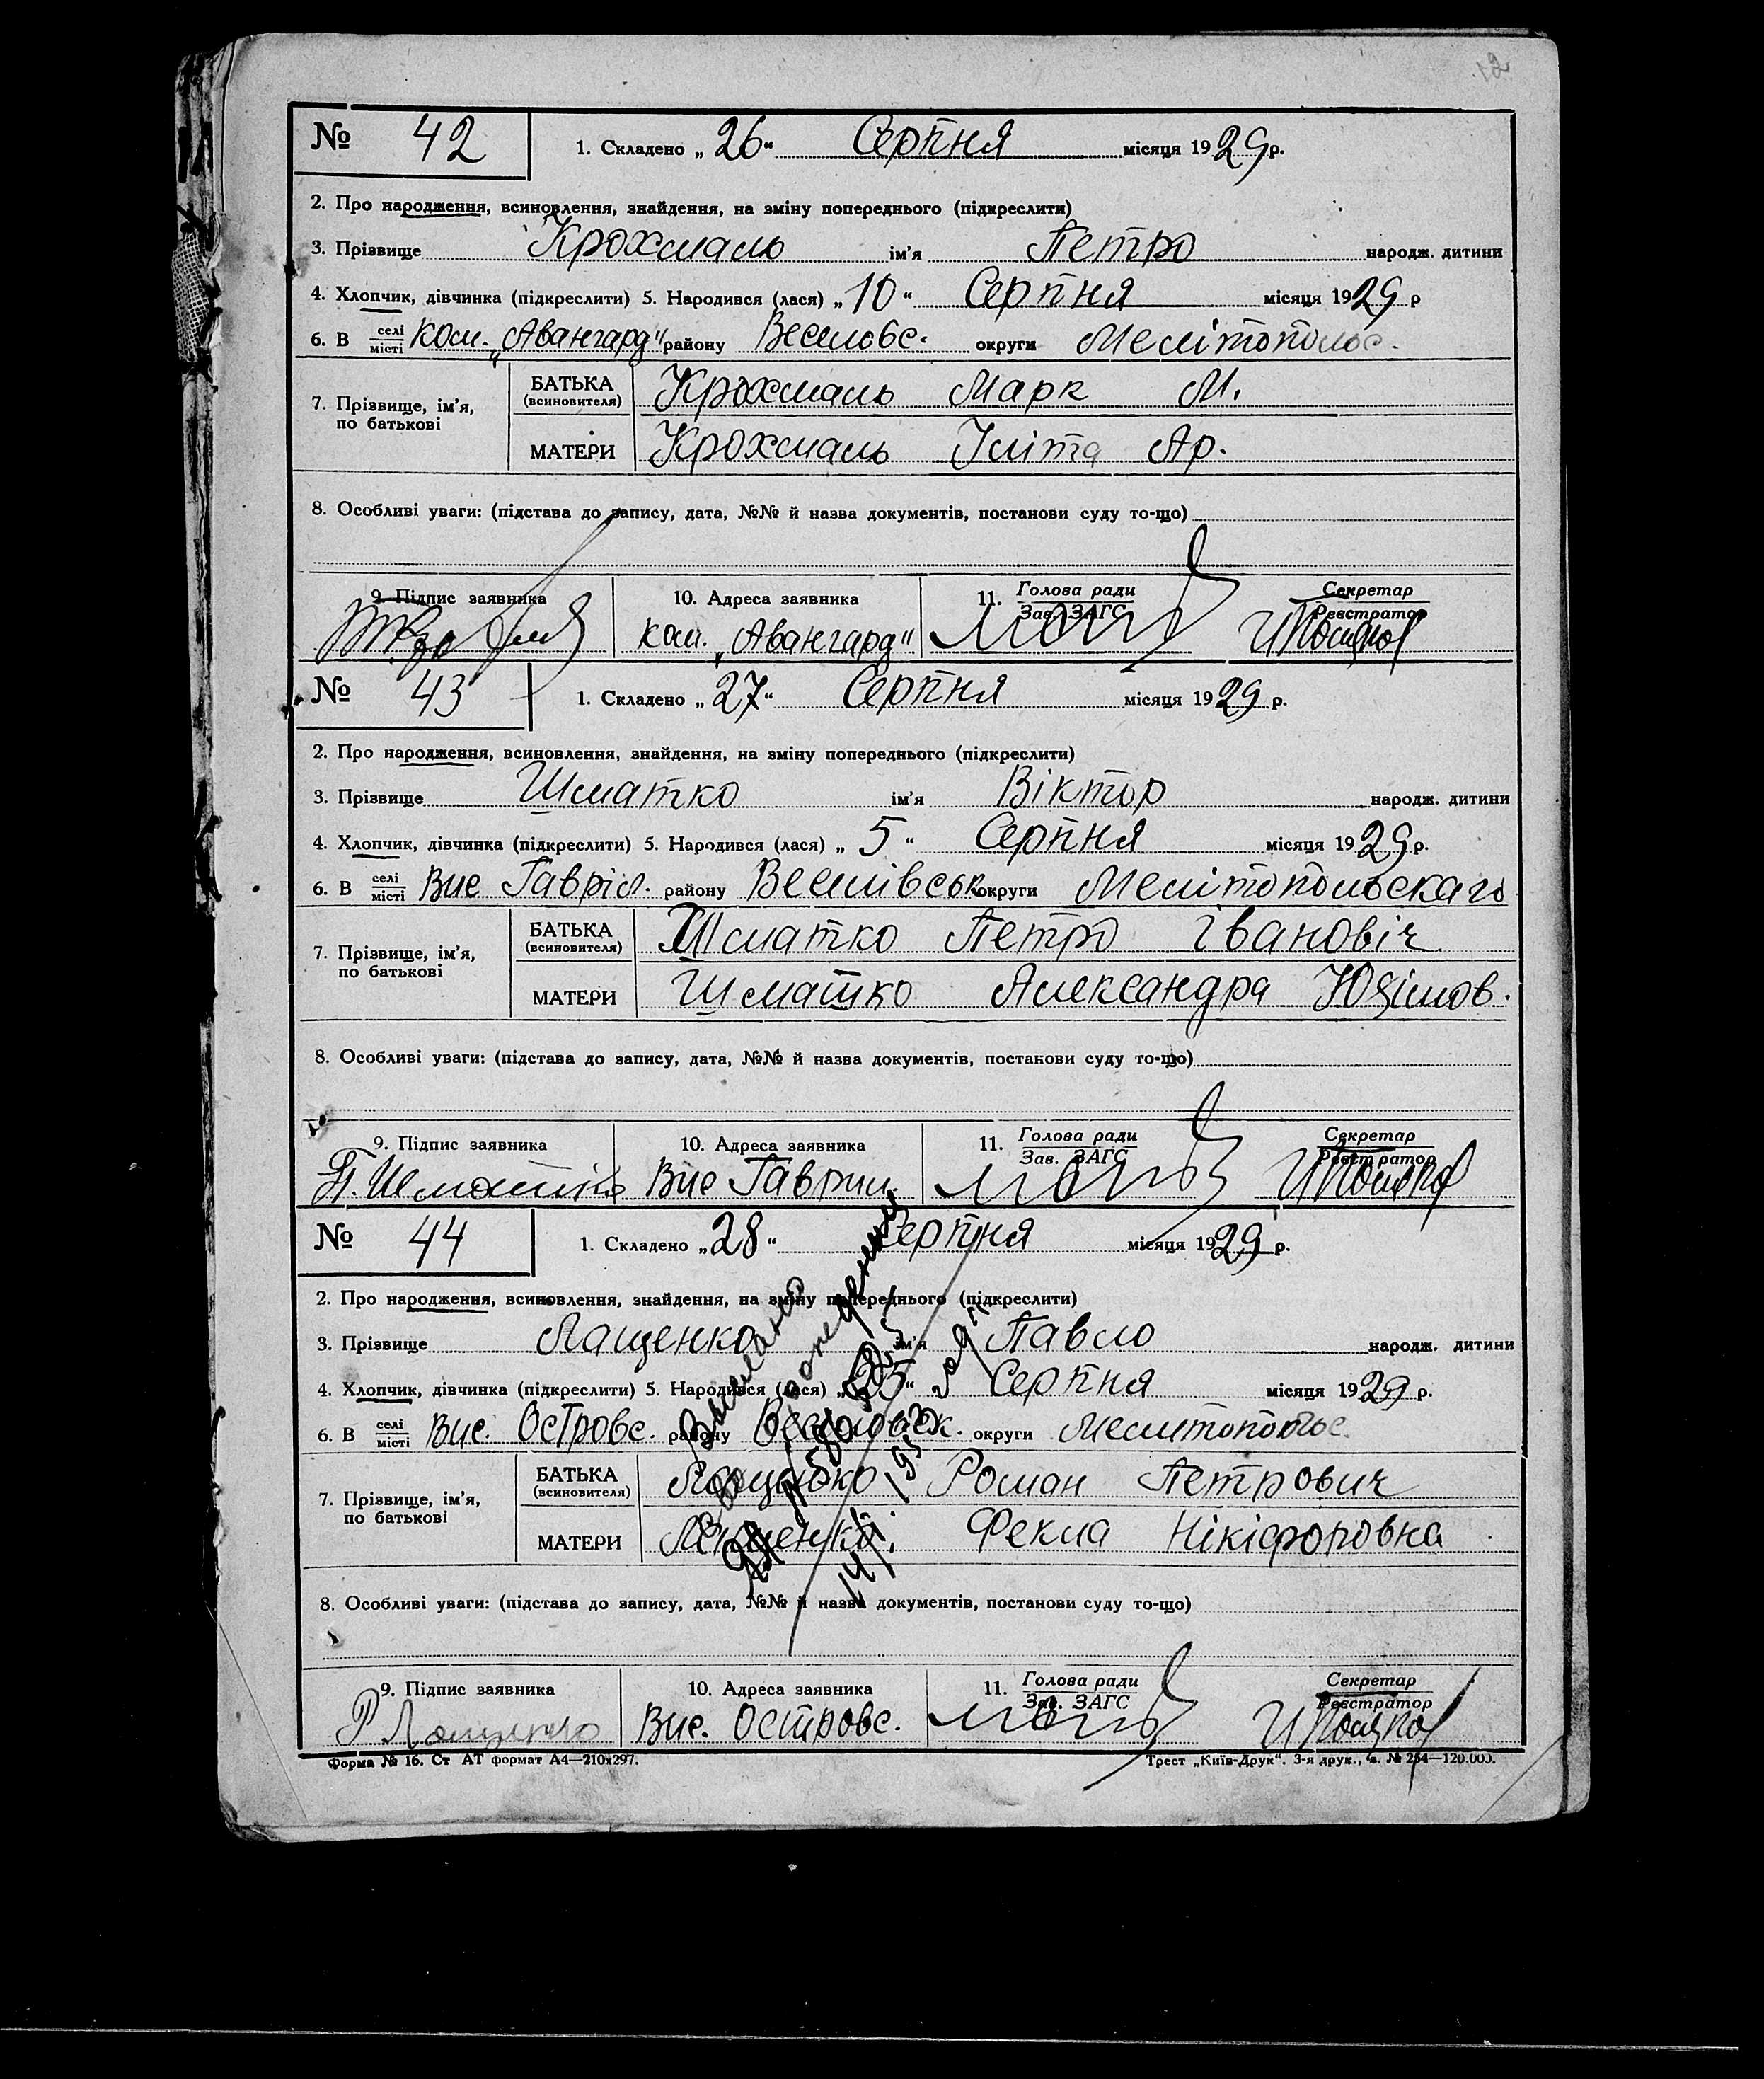 № 42 1. Складено „26“ Серпня місяця 1929 р.
2. Про народження, всиновлення, знайдення, на зміну попереднього (підкреслити)
3. Прізвище Крохмаль ім'я Петро народж. дитини
4. Хлопчик, дівчинка (підкреслити) 5. Народився (лася) „10“ Серпня місяця 1929 р
6. В селі місті Ком. „Авангард“ району Веселовс. округи Мелітопольс.
7. Прізвище, ім'я, по батькові
БАТЬКА (всиновителя) Крохмаль Марк М.
МАТЕРИ Крохмаль Ар.
8. Особливі уваги: (підстава до запису, дата, №№ й назва документів, постанови суду то-що)
9. Підпис заявника 10. Адреса заявника 11. Голова ради Зав. ЗАГС Секретар Реєстратор
Ком. „Авангард“
№ 43 1. Складено „27“ Серпня місяця 1929 р.
2. Про народження, всиновлення, знайдення, на зміну попереднього (підкреслити)
3. Прізвище Шматко ім'я Віктор народж. дитини
4. Хлопчик, дівчинка (підкреслити) 5. Народився (лася) „5“ Серпня місяця 1929 р.
6. В селі місті Вис Гавріл. району Веселівськ округи Мелітопольскаго
7. Прізвище, ім'я, по батькові
БАТЬКА (всиновителя) Шматко Петро Івановіч
МАТЕРИ Шматко Александра
8. Особливі уваги: (підстава до запису, дата, №№ й назва документів, постанови суду то-що)
9. Підпис заявника 10. Адреса заявника 11. Голова ради Зав. ЗАГС Секретар Реєстратор
П. Шматко Вис Гаврил.
№ 44 1. Складено „28“ Серпня місяця 1929 р.
2. Про народження, всиновлення, знайдення, на зміну попереднього (підкреслити)
3. Прізвище Лащенко ім'я Павло народж. дитини
4. Хлопчик, дівчинка (підкреслити) 5. Народився (лася) Серпня місяця 1929 р.
6. В селі місті Вис. Островс. району Веселовск. округи Мелитопольс.
7. Прізвище, ім'я, по батькові
БАТЬКА (всиновителя) Лащенко Роман Петрович
МАТЕРИ Лащенко Фекла Нікіфоровна
8. Особливі уваги: (підстава до запису, дата, №№ й назва документів, постанови суду то-що)
9. Підпис заявника 10. Адреса заявника 11. Голова ради Зав. ЗАГС Секретар Реєстратор
Р Лащенко Вис. Островс.
Форма № 16. Ст АТ формат А4—210х297. Трест „Київ-Друк“. 3-я друк., з. № 254—120.000.